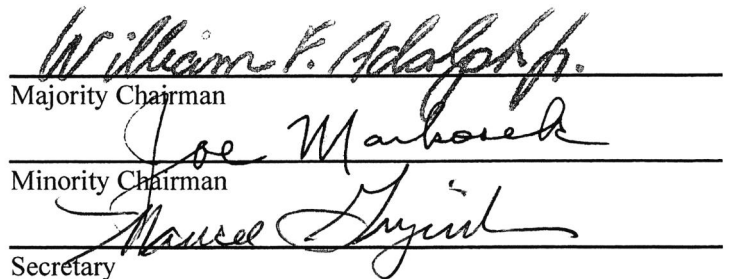 William F. Adolph Jr.
Majority Chairman
Joe Markosek
Minority Chairman
Secretary